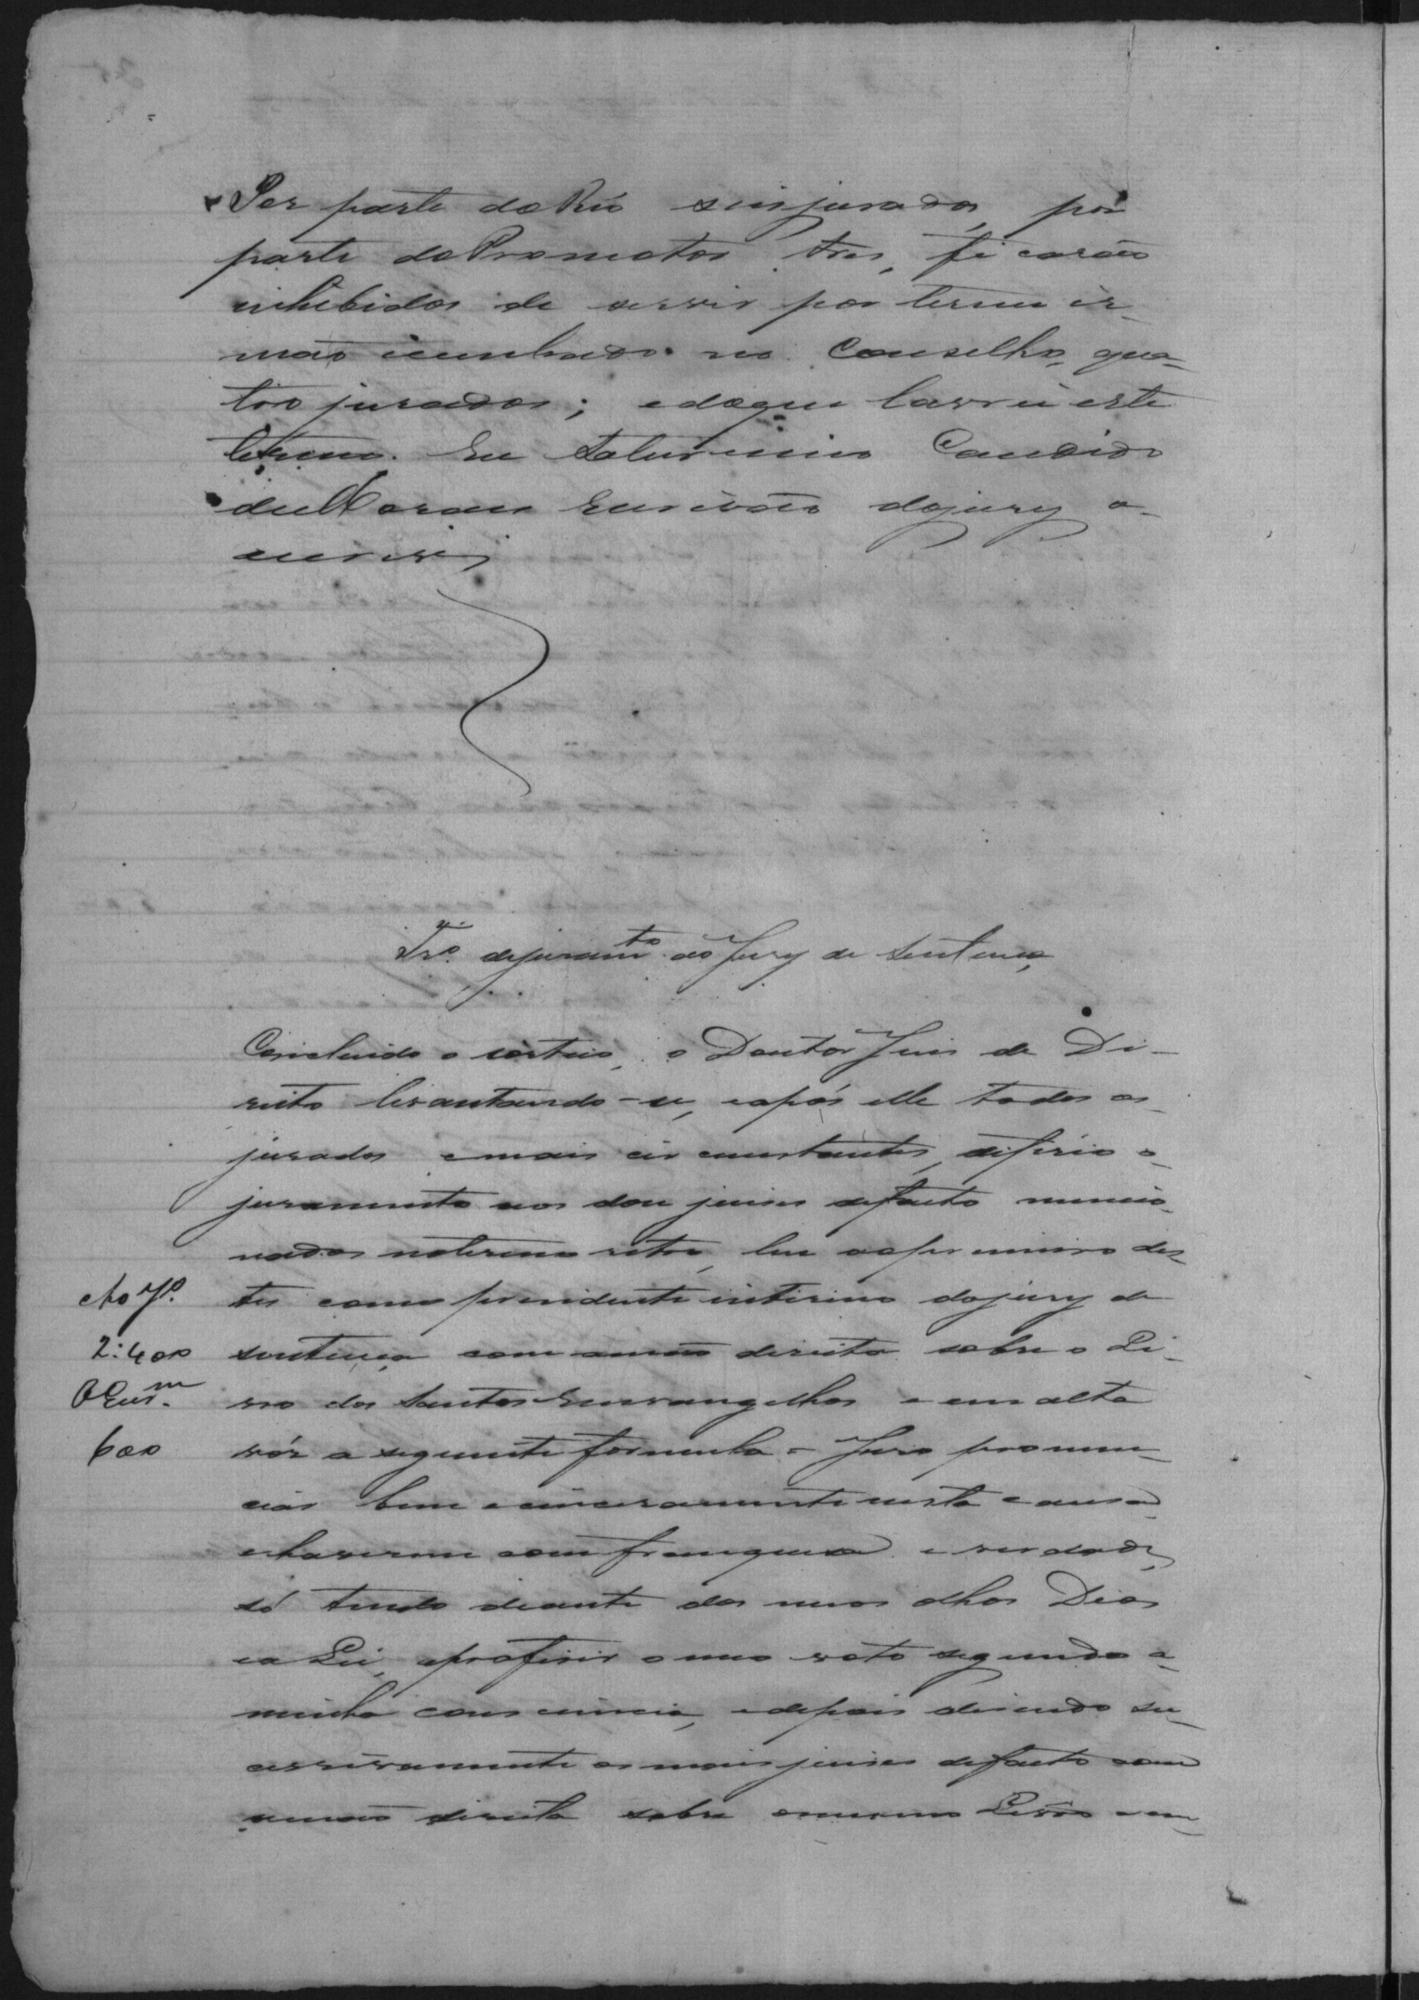 Por parte do Réo seis jurados, por
parte do Promotor tres, ficarão
inhibidos de servir por terem ir-
mão cunhado no Conselho, qua-
tro jurados; e do que lavrei este
termo. Eu Saturnino Candido
de Moraes Escrivão do jury o
escrevi
Tr.º de juramto do Jury de Sentença
Concluido o sorteio, o Doutor Juis de Di-
reito levantando-se, e após elle todos os
jurados e mais circunstantes, diferio o
juramento aos dose juises de facto mencio-
nados no termo retro, leu o primeiro des-
tes como presidente interino do jury de
sentença com a mão direita sobre o Li-
vro dos Santos Envangelhos e em alta
vóz a seguinte formula = Juro pronun-
ciar bem e sinceramente nesta causa
e haverme com franquesa e verdade,
só tendo diante dos meus olhos Deos
e a Lei, e proferir o meu voto segundo a
minha consciencia, e depois disendo su-
cessivamente os mais juises de facto com
a mão direita sobre o mesmo Livro em
Ao Jº.
2:400
O Esm.
600